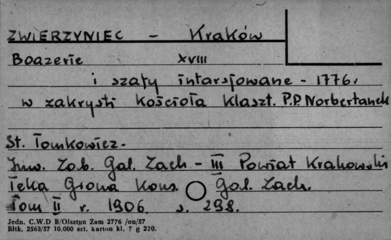 ZWIERZYNIEC - Kraków
Boazerie XVIII
i szafy intarsjowane - 1776r
w zakrysti kościoła Klaszt. P.P. Norbertanek
St. Tomkowicz -
Inw. Zab. Gal. Zach. - III Powiat Krakowski
Teka Grona Kons. Gal. Zach.
Tom II r. 1906 s. 298.
Jedn. C.W.D B/Olsztyn Zam 2776 /os/57
Bltk. 2563/57 10.000 szt. karton kl. 7 g 220.